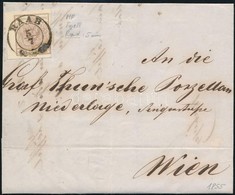 RAAB
An die
Graf Thun'sche Porzellan
niederlage,
Wien
1855